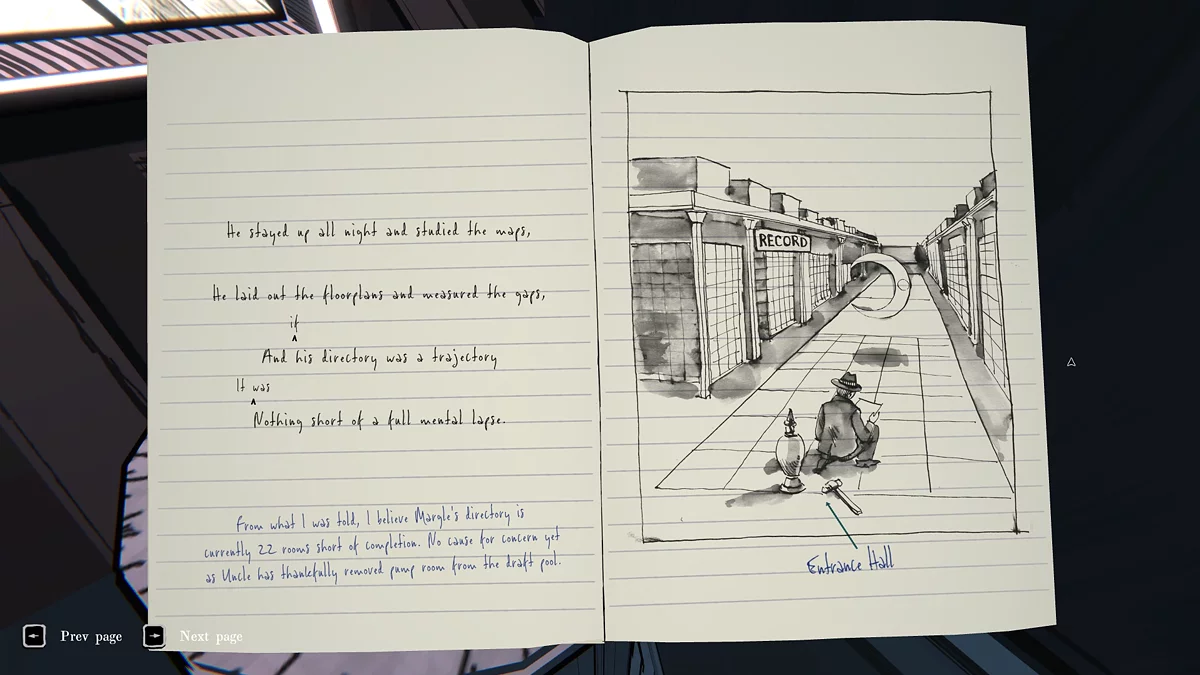 He stayed up all night and studied the maps,
He laid out the floorplans and measured the gaps,
if
^
And his directory was a trajectory
It was
^
Nothing short of a full mental lapse.
From what I was told, I believe Margle's directory is
currently 22 rooms short of completion. No cause for concern yet
as Uncle has thankfully removed pump room from the draft pool.
RECORD
Entrance Hall
← Prev page → Next page